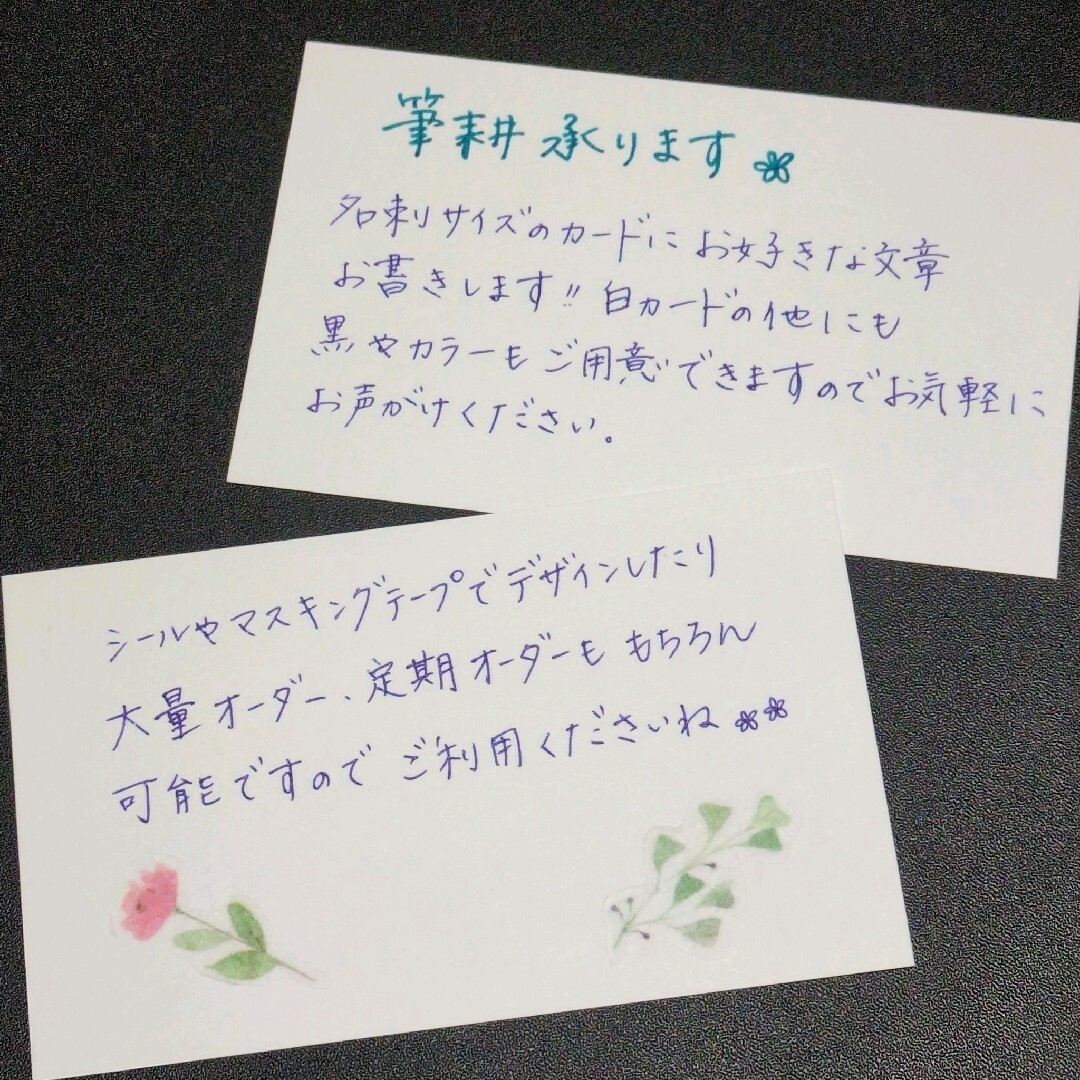 筆耕 承ります
名刺サイズのカードに お好きな文章
お書きします!! 白カードの他にも
黒やカラーも ご用意できますのでお気軽に
お声がけください。
シールやマスキングテープでデザインしたり
大量オーダー、定期オーダーも もちろん
可能ですので ご利用くださいね